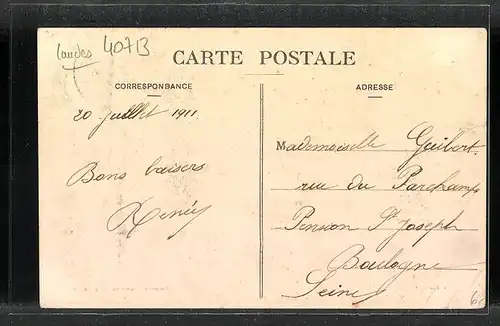 Landes 40713
CARTE POSTALE
CORRESPONDANCE
ADRESSE
20 Juillet 1911.
Bons baisers
Renée
Mademoiselle Guibert.
rue du Parchamp
Pension St Joseph
Boulogne
Seine